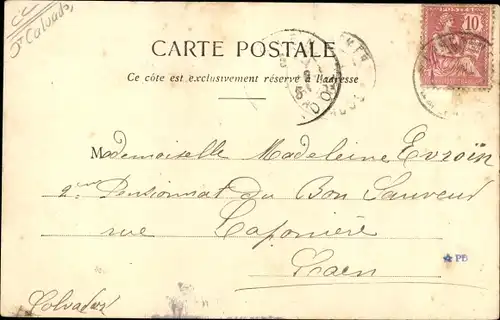 Calvados
CARTE POSTALE
Ce côté est exclusivement réservé à l'adresse
10
Mademoiselle Madeleine Evroïn
2me Pensionnat du Bon Sauveur
rue Caponière
Caen
Calvados
PB